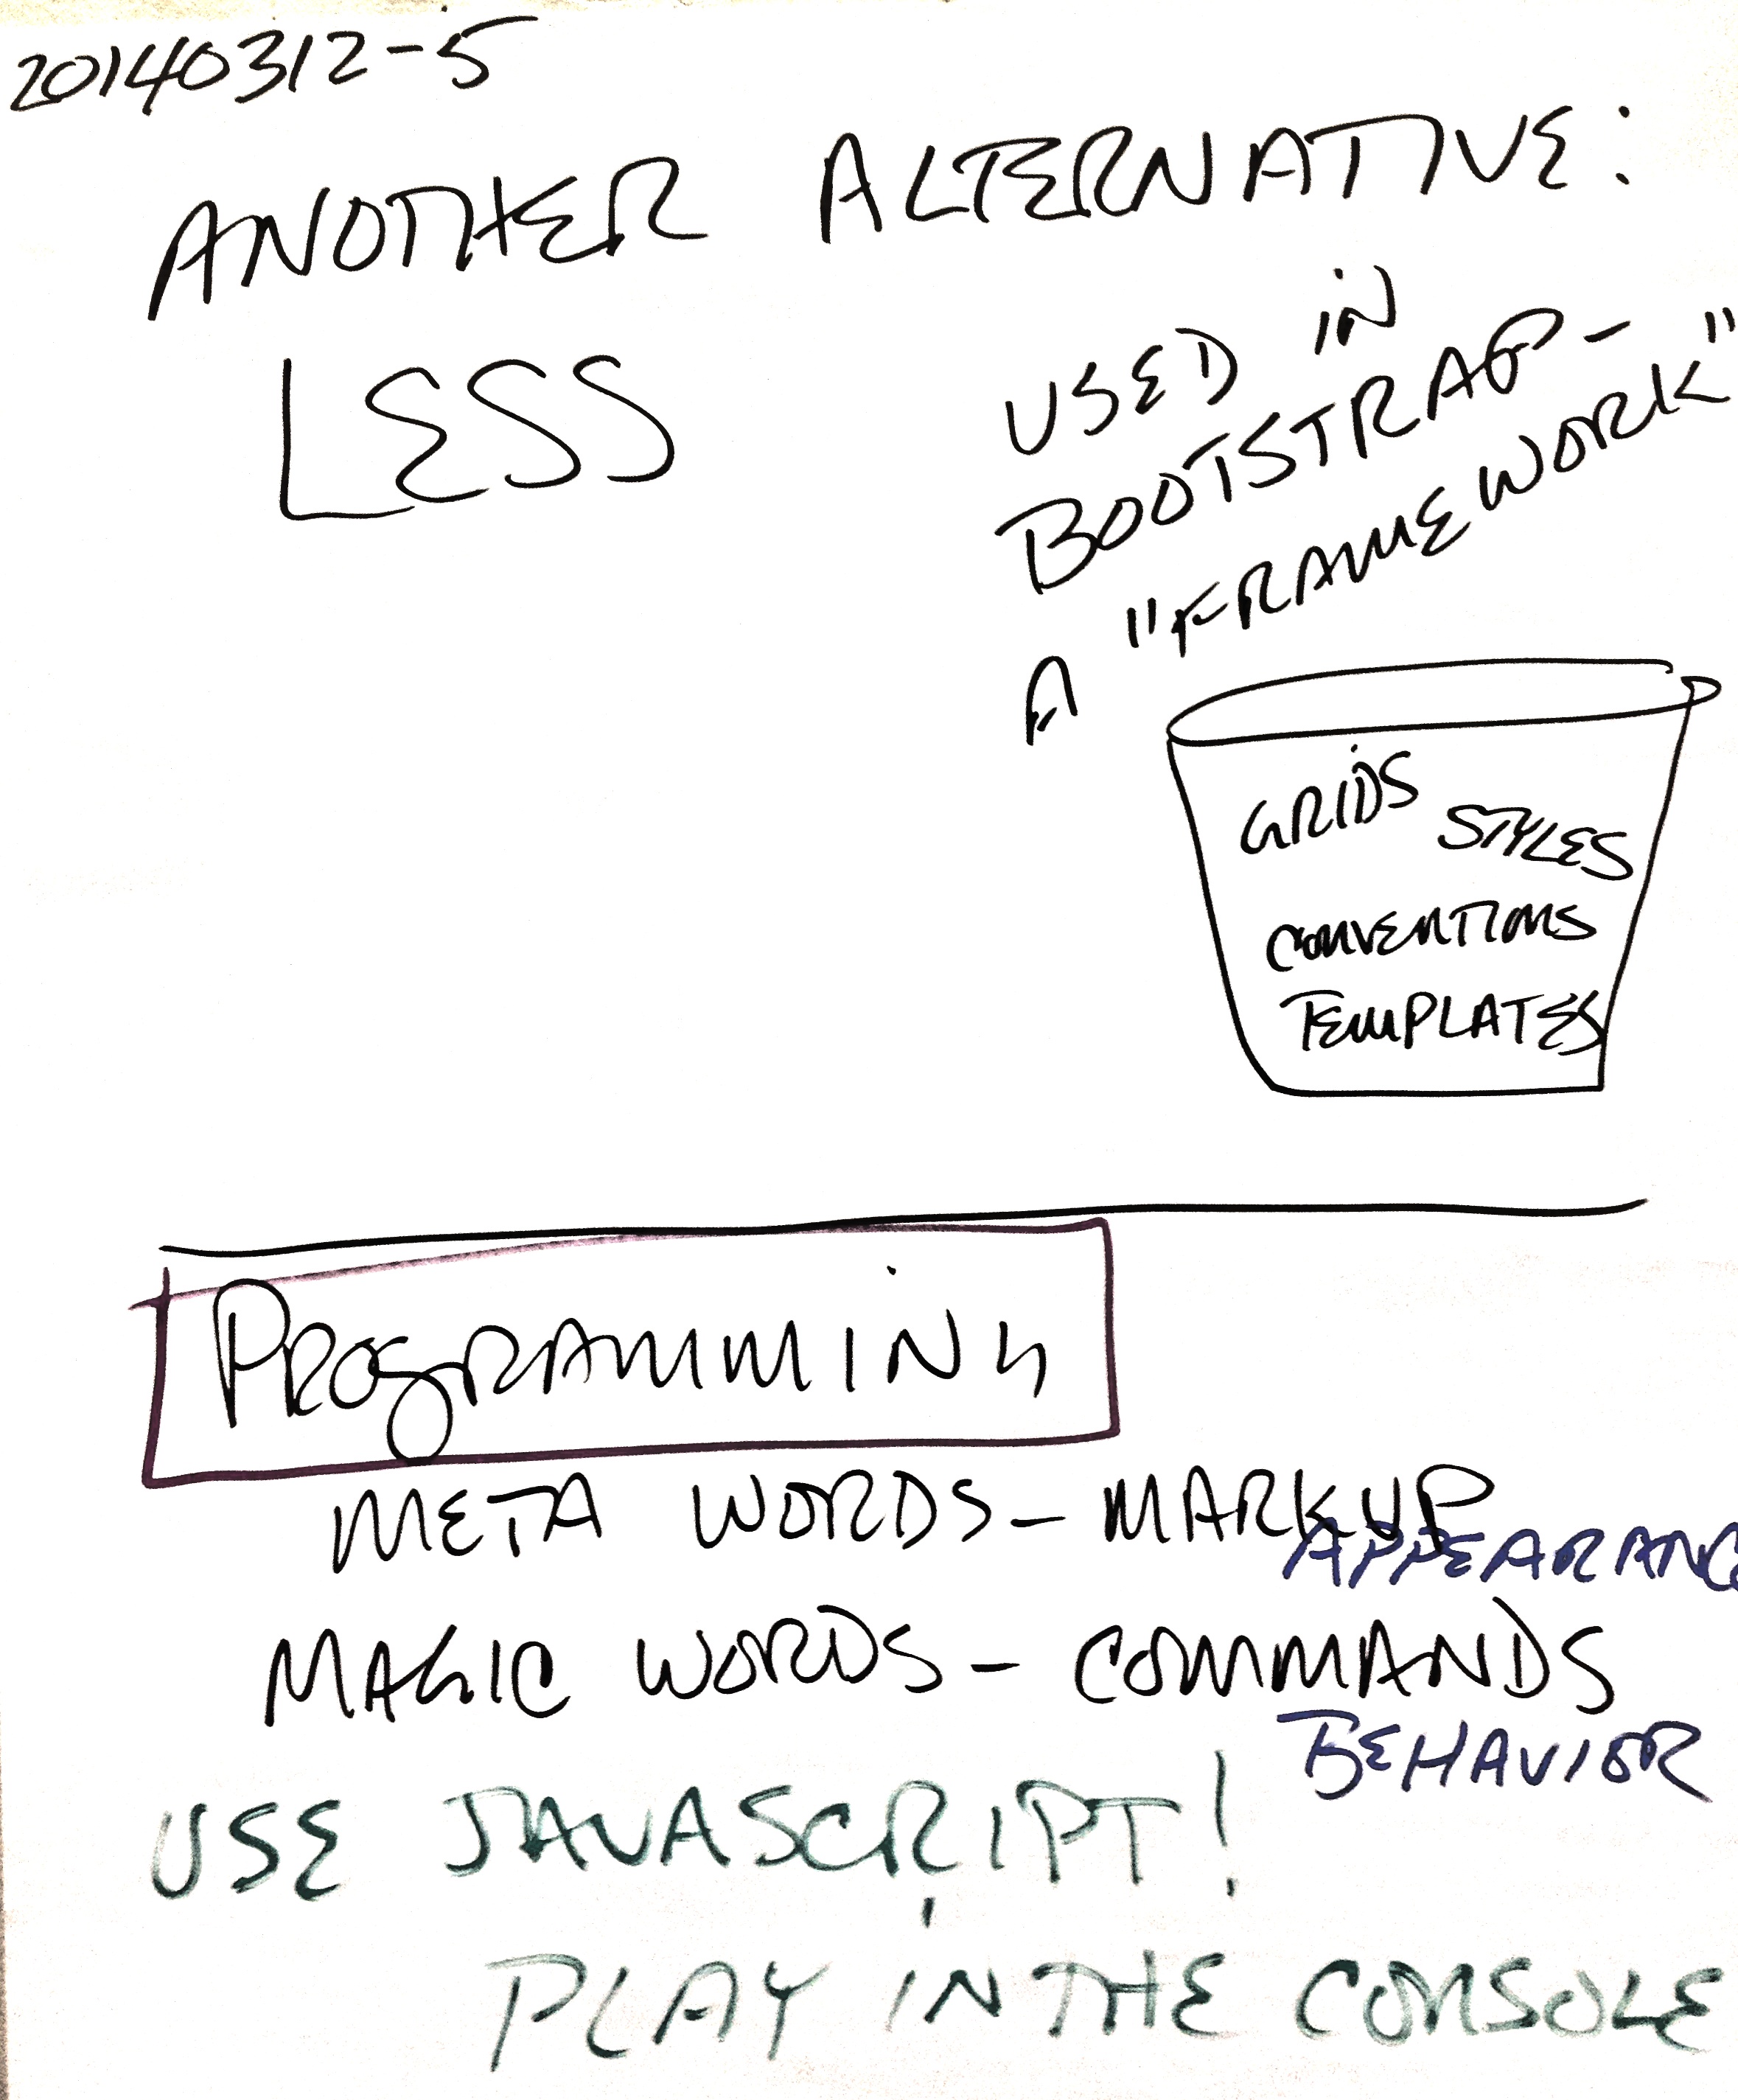 20140312-5
ANOTHER ALTERNATIVE:
LESS
USED IN
BOOTSTRAP-
A "FRAMEWORK"
GRIDS STYLES
CONVENTIONS
TEMPLATES
PROGRAMMING
META WORDS - MARKUP
APPEARANC
MAGIC WORDS - COMMANDS
BEHAVIOR
USE JAVASCRIPT!
PLAY IN THE CONSOLE